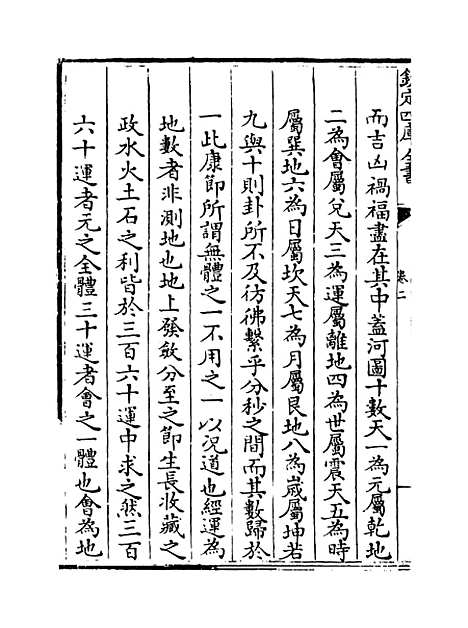 欽定四庫全書
卷二
而吉凶禍福盡在其中蓋河圖十數天一為元屬乾地
二為會屬兌天三為運屬離地四為世屬震天五為時
屬巽地六為日屬坎天七為月屬艮地八為嵗屬坤若
九與十則卦所不及彷彿繫乎分秒之間而其數歸於
一此康節所謂無體之一不用之一以况道也經運為
地數者非測地也地上發斂分至之節生長收藏之
政水火土石之利皆於三百六十運中求之然三百
六十運者元之全體三十運者會之一體也會為地